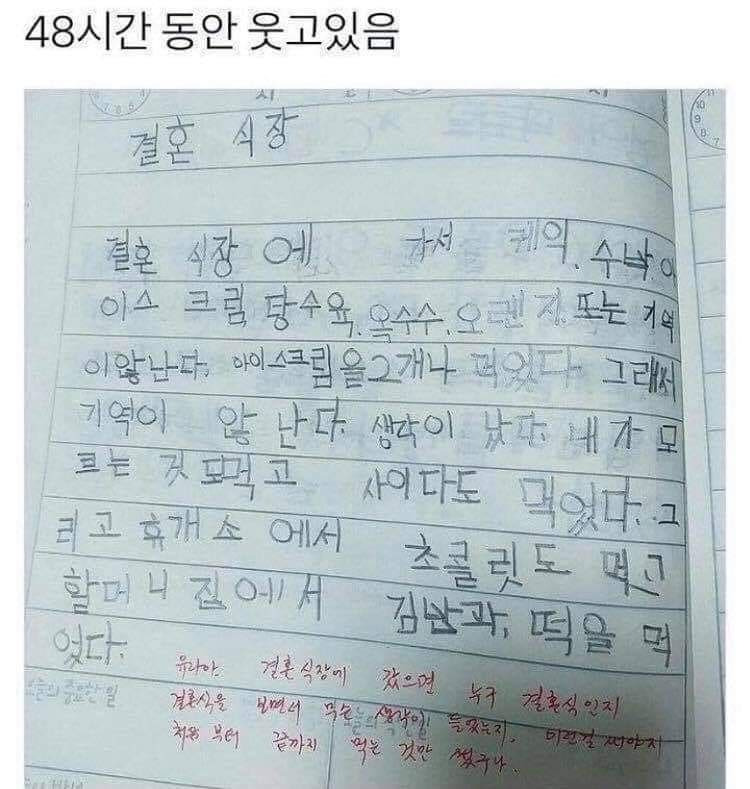 48시간 동안 웃고있음
결혼 식장
결혼 식장 에 가서 케익, 수박, 아
이스 크림, 탕수육, 옥수수, 오렌지, 또는 기역
이않난다. 아이스크림을2개나 먹었다. 그래서
기역이 않 난다. 생각이 났다. 내가 모
르는 것 도먹고 사이다도 먹었다. 그
리고 휴개소 에서 초클릿도 먹고
할머니 집에서 김밥과, 떡을 먹
었다.
유라야. 결혼식장에 갔으면 누구 결혼식인지
결혼식을 보면서 무슨 생각이 들었는지, 이런걸 써야지
처음 부터 끝까지 먹는 것만 썼구나.
오늘의 중요한 일